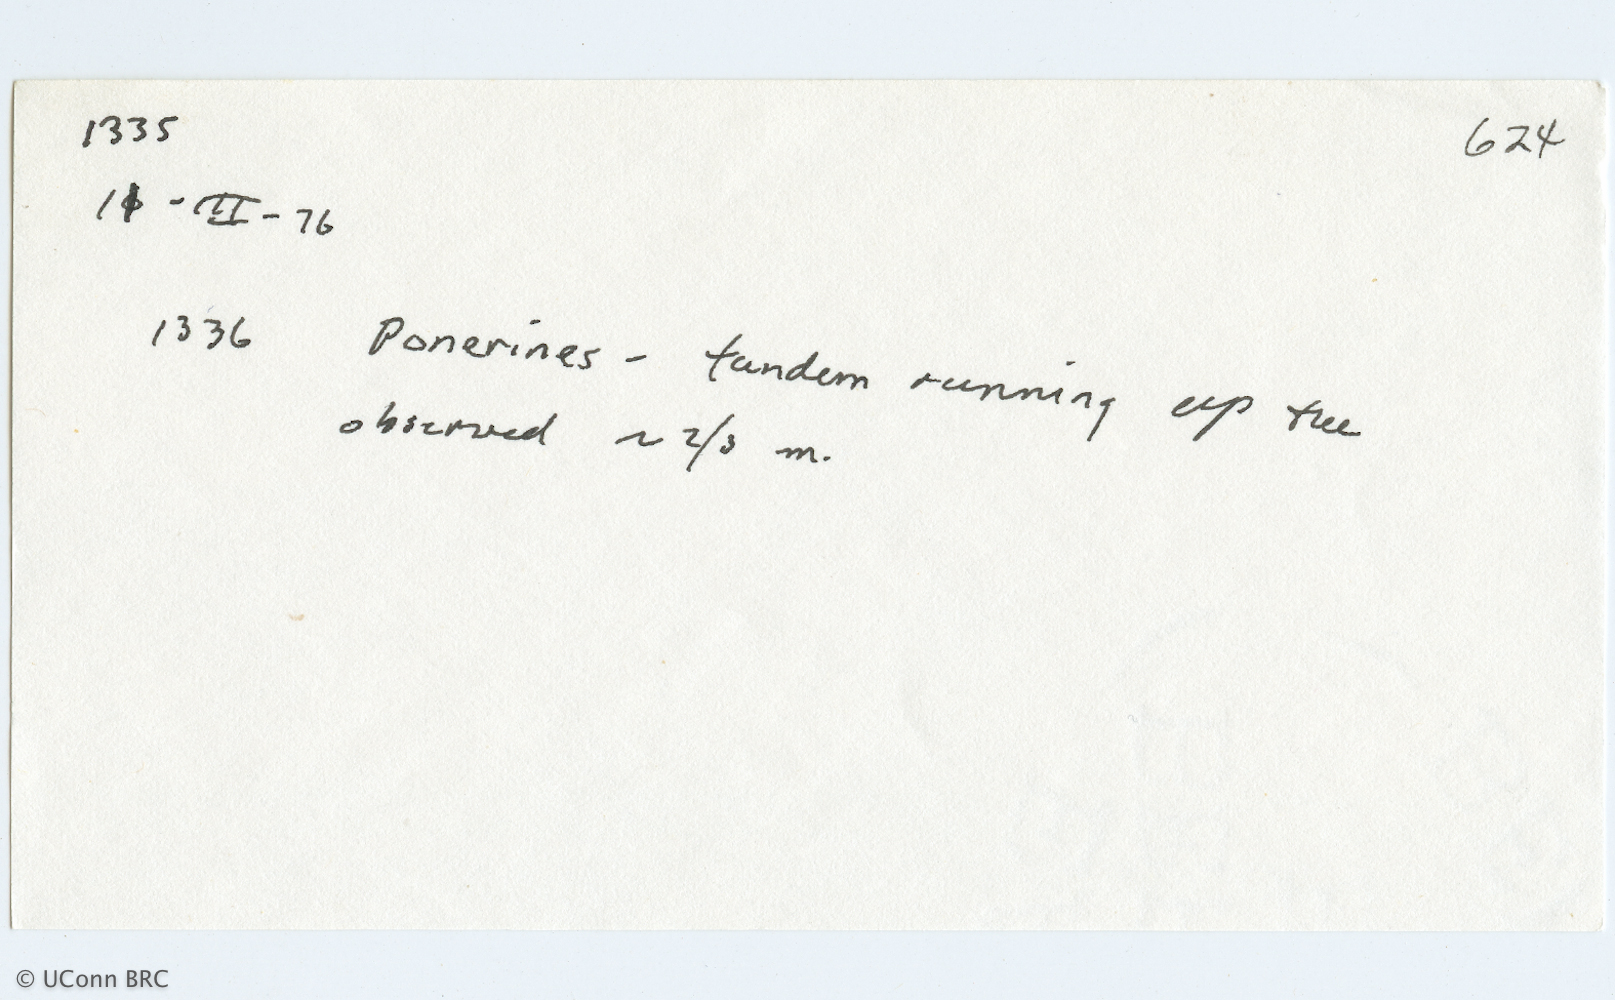 1335 624
11-III-76
1336 Ponerines - tandem running up tree
observed ~ 2/3 m.
© UConn BRC